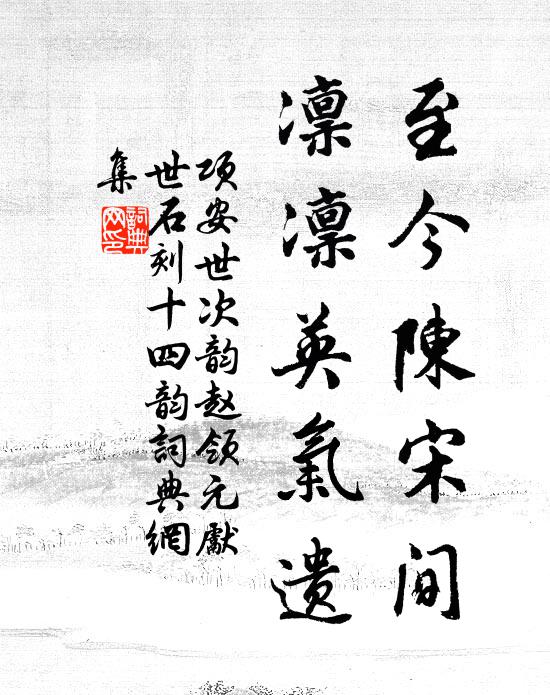 至今陳宋间
凛凛英氣遗
项安世次韵赵领元獻
世石刻十四韵詞典網
集
詞典网印